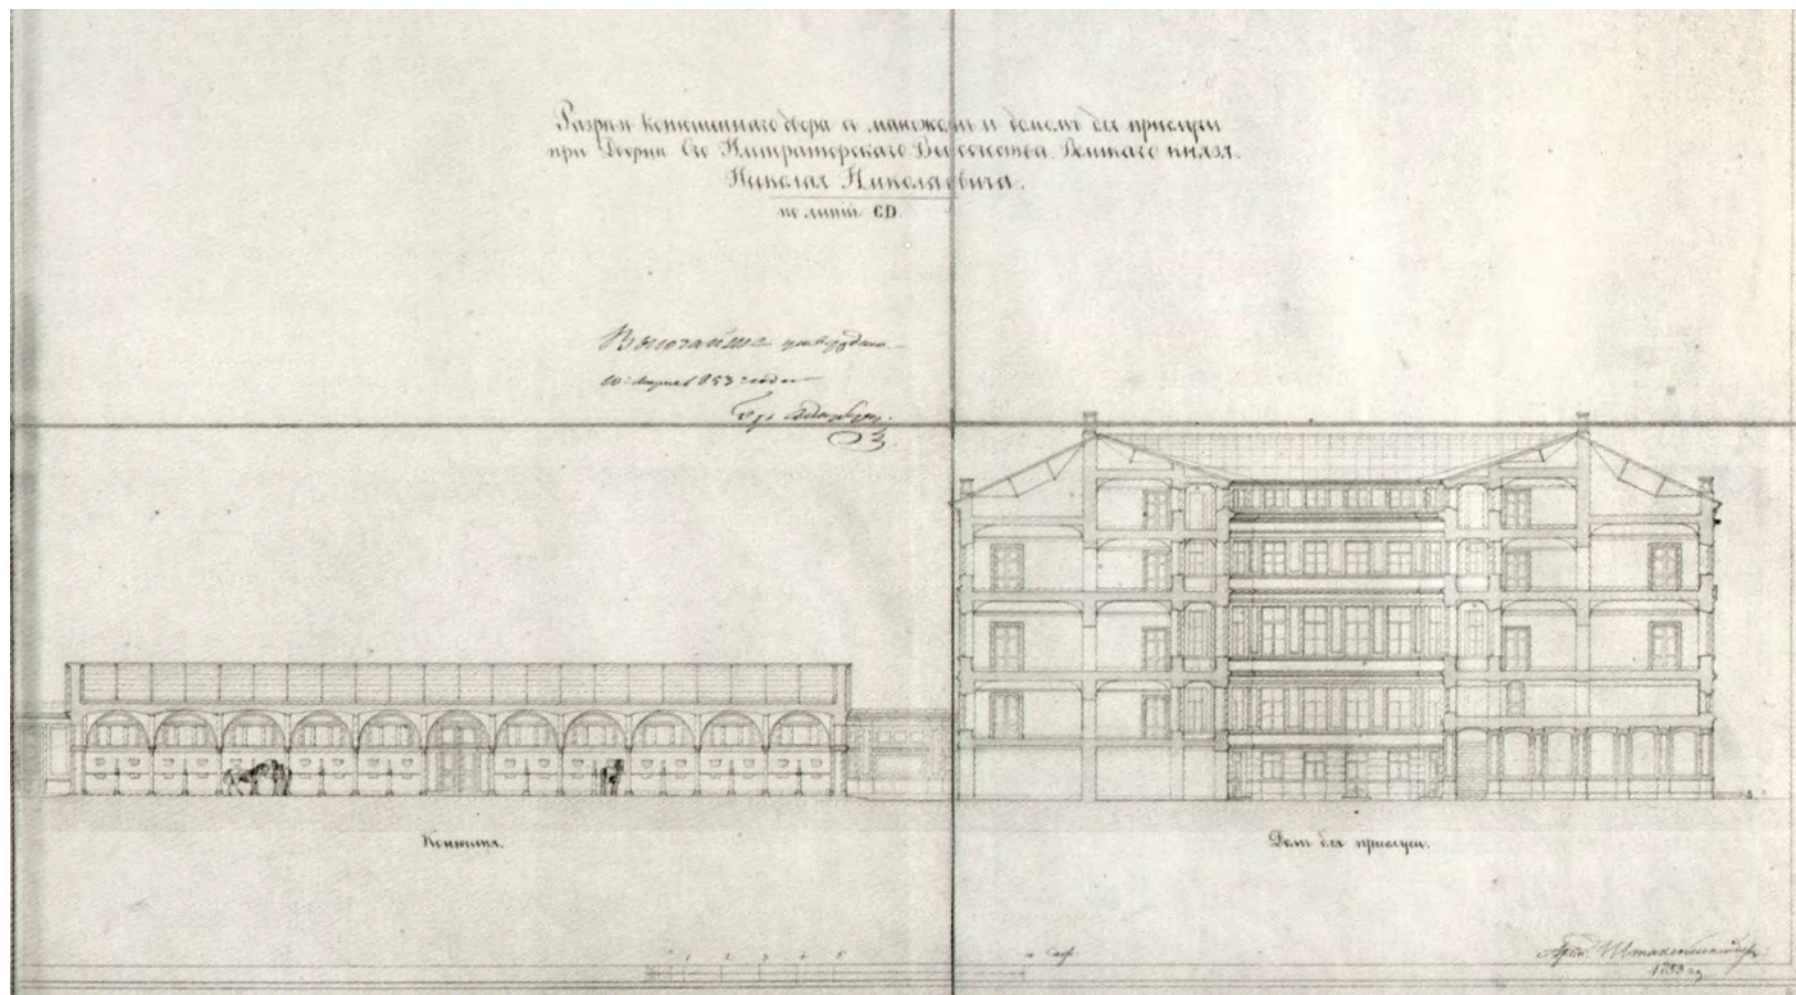 Разрѣзъ конюшеннаго двора съ манежемъ и домомъ для прислуги
при Дворцѣ Его Императорскаго Высочества Великаго князя
Николая Николаевича.
по линіи CD.
Высочайше утверждено
853 года
Конюшня.
Домъ для прислуги.
1 2 3 4 5 10 Саж.
Архи. Штакеншнейдеръ
1853 г.